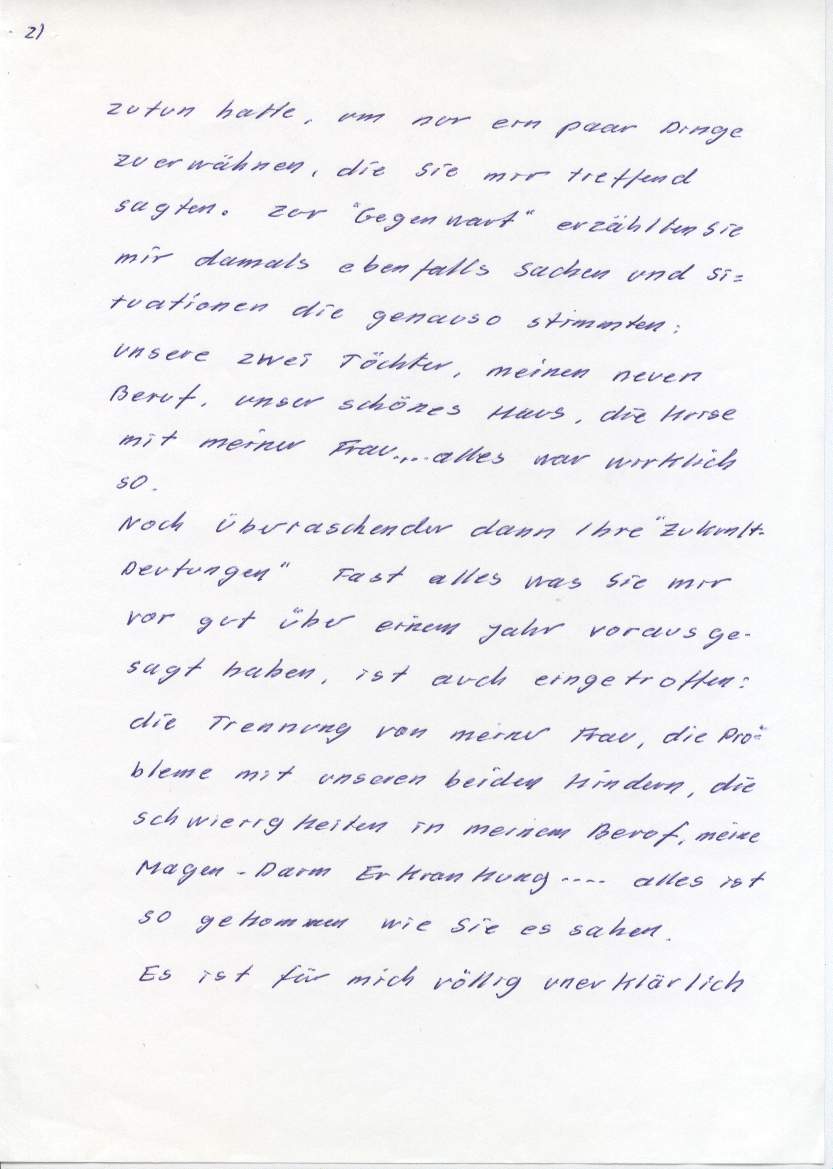 2)
zutun hatte, um nur ein paar Dinge
zuerwähnen, die Sie mir treffend
sagten. Zur "Gegenwart" erzählten Sie
mir damals ebenfalls Sachen und Si=
tuationen die genauso stimmten:
unsere zwei Töchter, meinen neuen
Beruf, unser schönes Haus, die Krise
mit meiner Frau....alles war wirklich
so.
Noch überraschender dann Ihre "Zukunft-
Deutungen" Fast alles was Sie mir
vor gut über einem Jahr vorausge-
sagt haben, ist auch eingetroffen:
die Trennung von meiner Frau, die Pro=
bleme mit unseren beiden Kindern, die
Schwierigkeiten in meinem Beruf, meine
Magen-Darm Erkrankung.... alles ist
so gekommen wie Sie es sahen.
Es ist für mich völlig unerklärlich